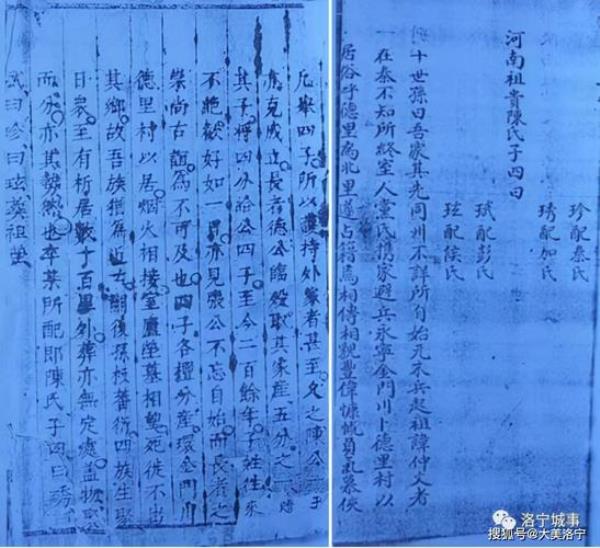 珍配秦氏
琇配加氏
河南祖貴陳氏子四曰
珷配彭氏
玹配侯氏
十世孫曰吾家其先同州不詳所自始元末兵起祖諱仲文者
在秦不知所終室人黨氏携家避兵永寧金門川卜德里村以
居俗呼德里為北里遂占籍焉相傳相親豐偉慷慨負氣慕俠
凡舉四子所以護持外家者甚至久之陳公子
克成立長者德公臨歿取其家產五分之一
其子將四分給公四子至今二百餘年子姓往來
不絕歡好如一日亦見張公不忘自始而長者之
崇尚古誼為不可及也四子各擅分產環金門川
德里村以居烟火相接室廬塋墓相望死徙不出
其鄉故吾族猶為近古嗣後孫枝蕃衍四族生聚
日衆至有析居數十百里外葬亦無定處蓋物衆
而分亦其勢然也卒某所配郎陳氏子四曰琇
珷曰珍曰玹葬祖塋
洛宁城事
搜狐号@大美洛宁